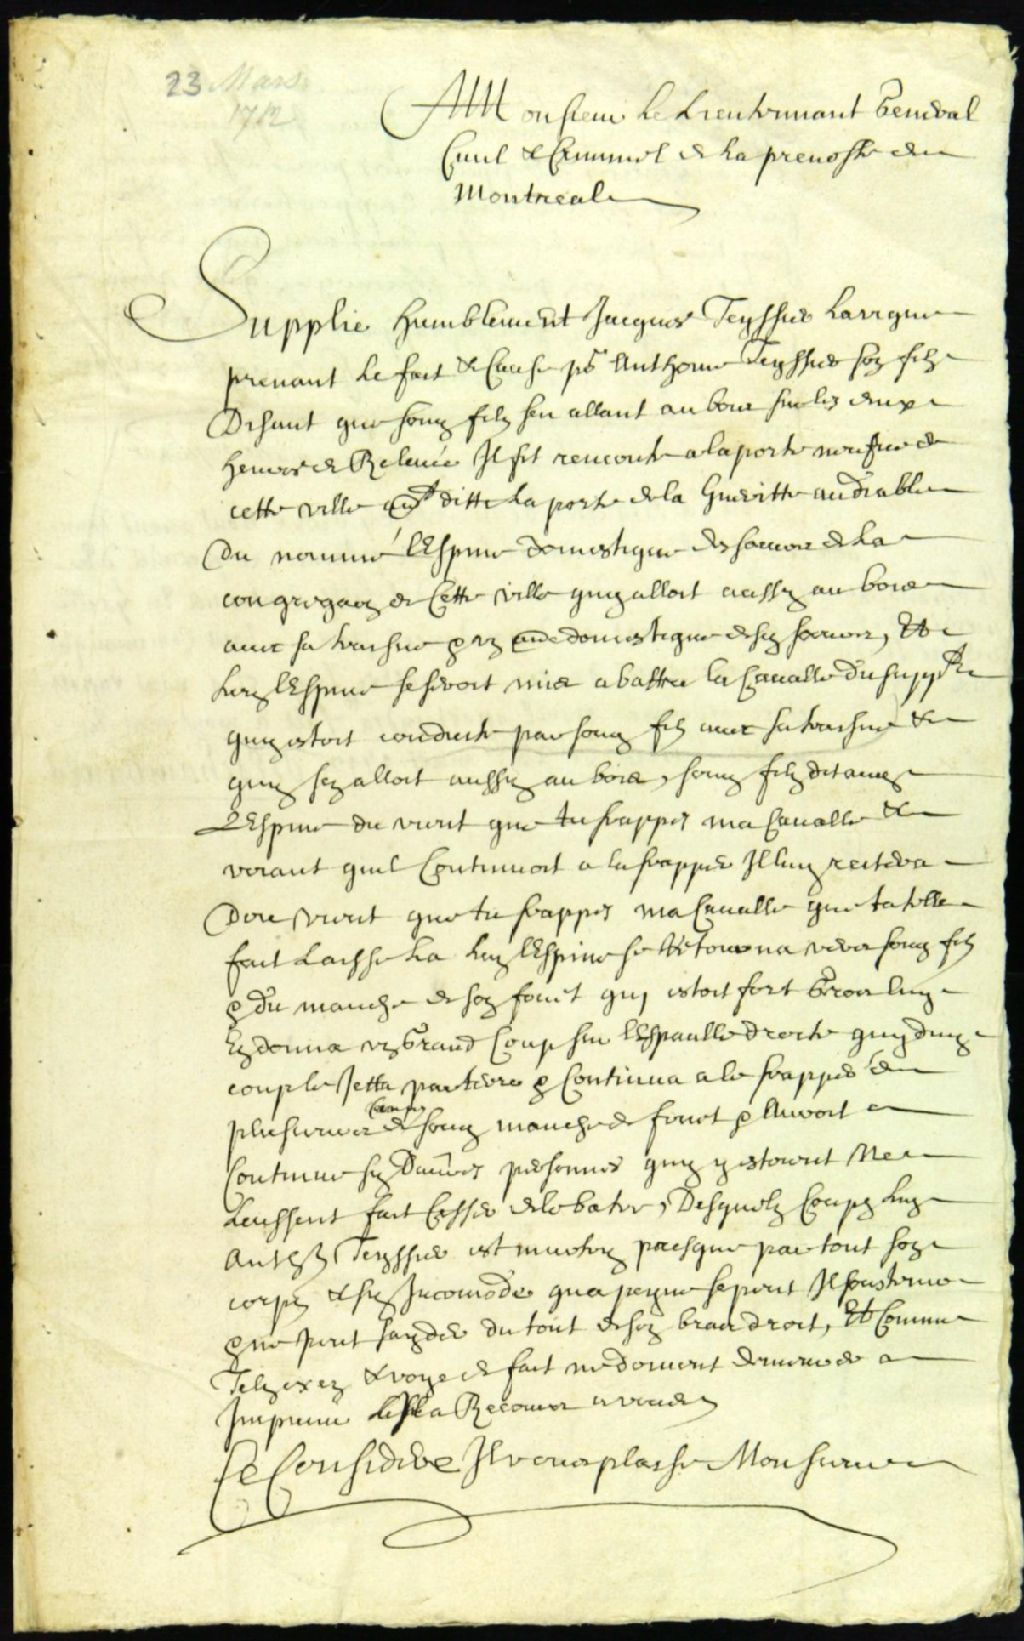 23 Mars
1712
A Monsieur le Lieutennant General
Civil & Criminel de la prevosté de
Montreal
Supplie humblement Jacques Teyssier Lavigne
prenant le fait & Cause pr Anthoine Teyssier son filz
Disant que son filz s'en allant au bois sur les deux
heures de Relevée Il fit rencontre a la porte neufve de
cette ville ditte la porte de la Gueritte au diable
Du nommé l'Espine domestique des soeurs de la
congregaon de Cette ville quy alloit aussy au bois
avec sa traisne & un domestique desd soeurs, Et
led l'Espine se seroit mis a battre la Cavalle du suppt
quy estoit conduite par son filz avec sa traisne &
quy s'en alloit aussy au bois, son filz dit aud
L'Espine du vient que tu frappes ma Cavalle &
voiant quil Continuoit a la frapper Il luy reitera
Dou vient que tu frappes ma Cavalle que ta telle
fait laisse la led l'Espine se Retourna vers son filz
& du manche de son fouet quy estoit fort Gros luy
En donna un Grand Coup sur l'Espaulle droite quy du
coup le Jetta par terre & Continua a le frapper de
plusieurs coups de son manche de fouet & l'auroit
Continué sy D'autres personnes quy y estoient Ne
l'eussent fait Cesser de le batre, Desquelz Coups led
Anthne Teyssier est murtry presque par tout son
corps & sy Incomodé qua peyne se peut Il soustenir
& ne peut s'ayder du tout de son bras droit, Et Comme
Telz exces & voye de fait ne doivent demeurer
Impuni Il a Recours a vous
Ce Consideré Il vous plaise Monsieur